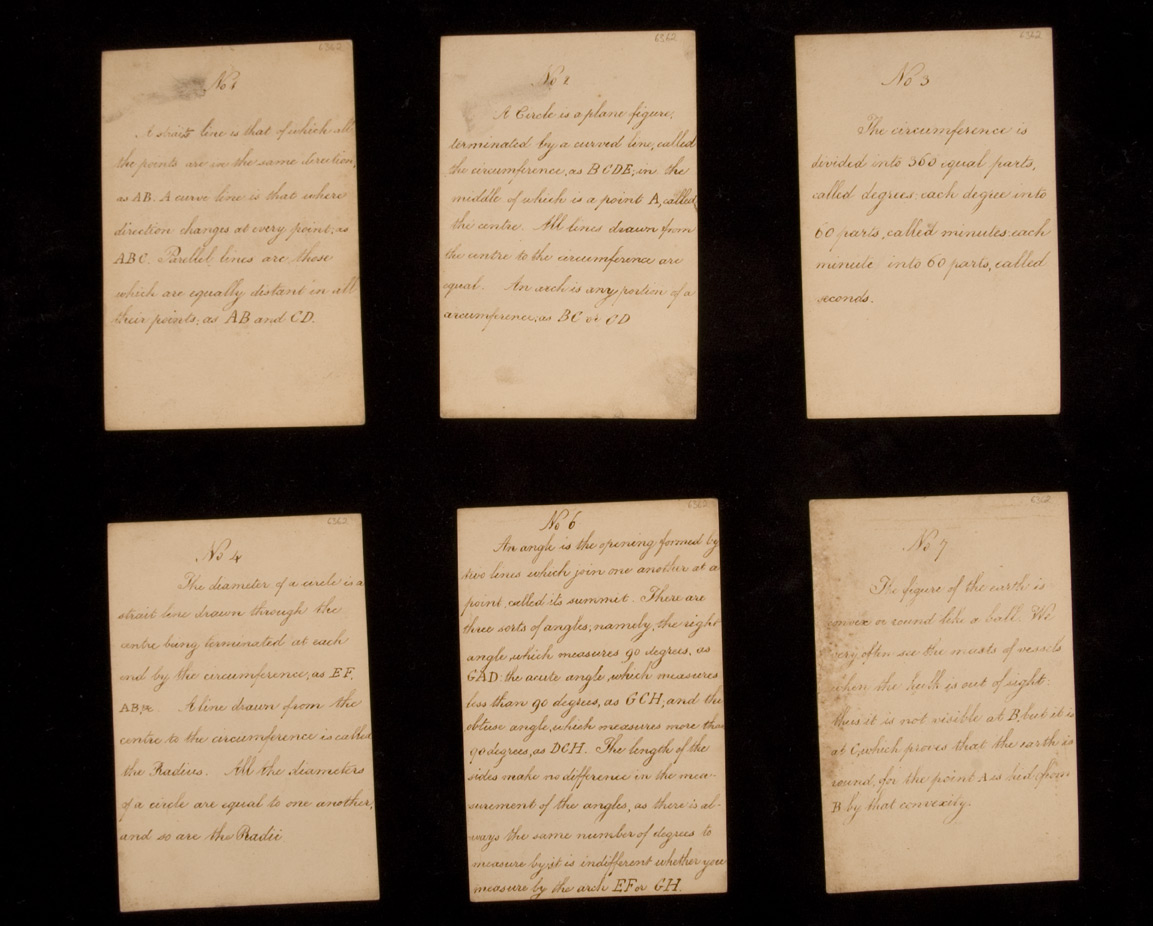 6362
No 1
A strait line is that of which all
the points are in the same direction,
as AB. A curve line is that where
direction changes at every point; as
ABC. Parellel lines are those
which are equally distant in all
their points; as AB and CD.
6362
No 2
A Circle is a plane figure,
terminated by a curved line, called
the circumference, as BCDE; in the
middle of which is a point A, called
the centre. All lines drawn from
the centre to the circumference are
equal. An arch is any portion of a
circumference; as BC or CD
6362
No 3
The circumference is
divided into 360 equal parts,
called degrees: each degree into
60 parts, called minutes: each
minute into 60 parts, called
seconds.
6362
No 4
The diameter of a circle is a
strait line drawn through the
centre being terminated at each
end by the circumference, as EF,
AB, &c. A line drawn from the
centre to the circumference is called
the Radius. All the diameters
of a circle are equal to one another,
and so are the Radii
6362
No 6
An angle is the opening formed by
two lines which join one another at a
point, called its summit. There are
three sorts of angles; namely, the right
angle, which measures 90 degrees, as
GAD: the acute angle, which measures
less than 90 degrees, as GCH, and the
obtuse angle, which measures more than
90 degrees, as DCH. The length of the
sides make no difference in the mea-
surement of the angles, as there is al-
ways the same number of degrees to
measure by; it is indifferent whether you
measure by the arch EF or GH.
6362
No 7
The figure of the earth is
convex or round like a ball. We
very often see the masts of vessels
when the hulk is out of sight:
thus it is not visible at B, but it is
at C, which proves that the earth is
round, for the point A is hid from
B by that convexity.